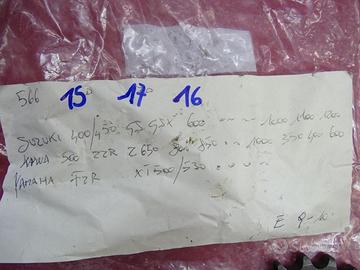 566 15 17 16
SUZUKI 400/450 GS GSX 600 " " 1000 1100 1200
KAWA 500 ZZR Z 650 850 " " 1000 350 400 600
YAMAHA FZR XT 500/530 " " " "
E 9-10